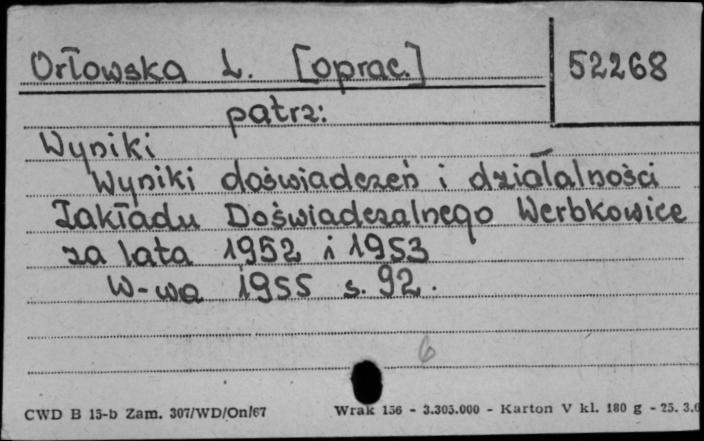 Orłowska L. [oprac.] 52268
patrz:
Wyniki
Wyniki doświadczeń i działalności
Zakładu Doświadczalnego Werbkowice
za lata 1952 i 1953
W-wa 1955 s. 92.
6
CWD B 15-b Zam. 307/WD/On/67 Wrak 156 - 3.305.000 - Karton V kl. 180 g - 25. 3.6